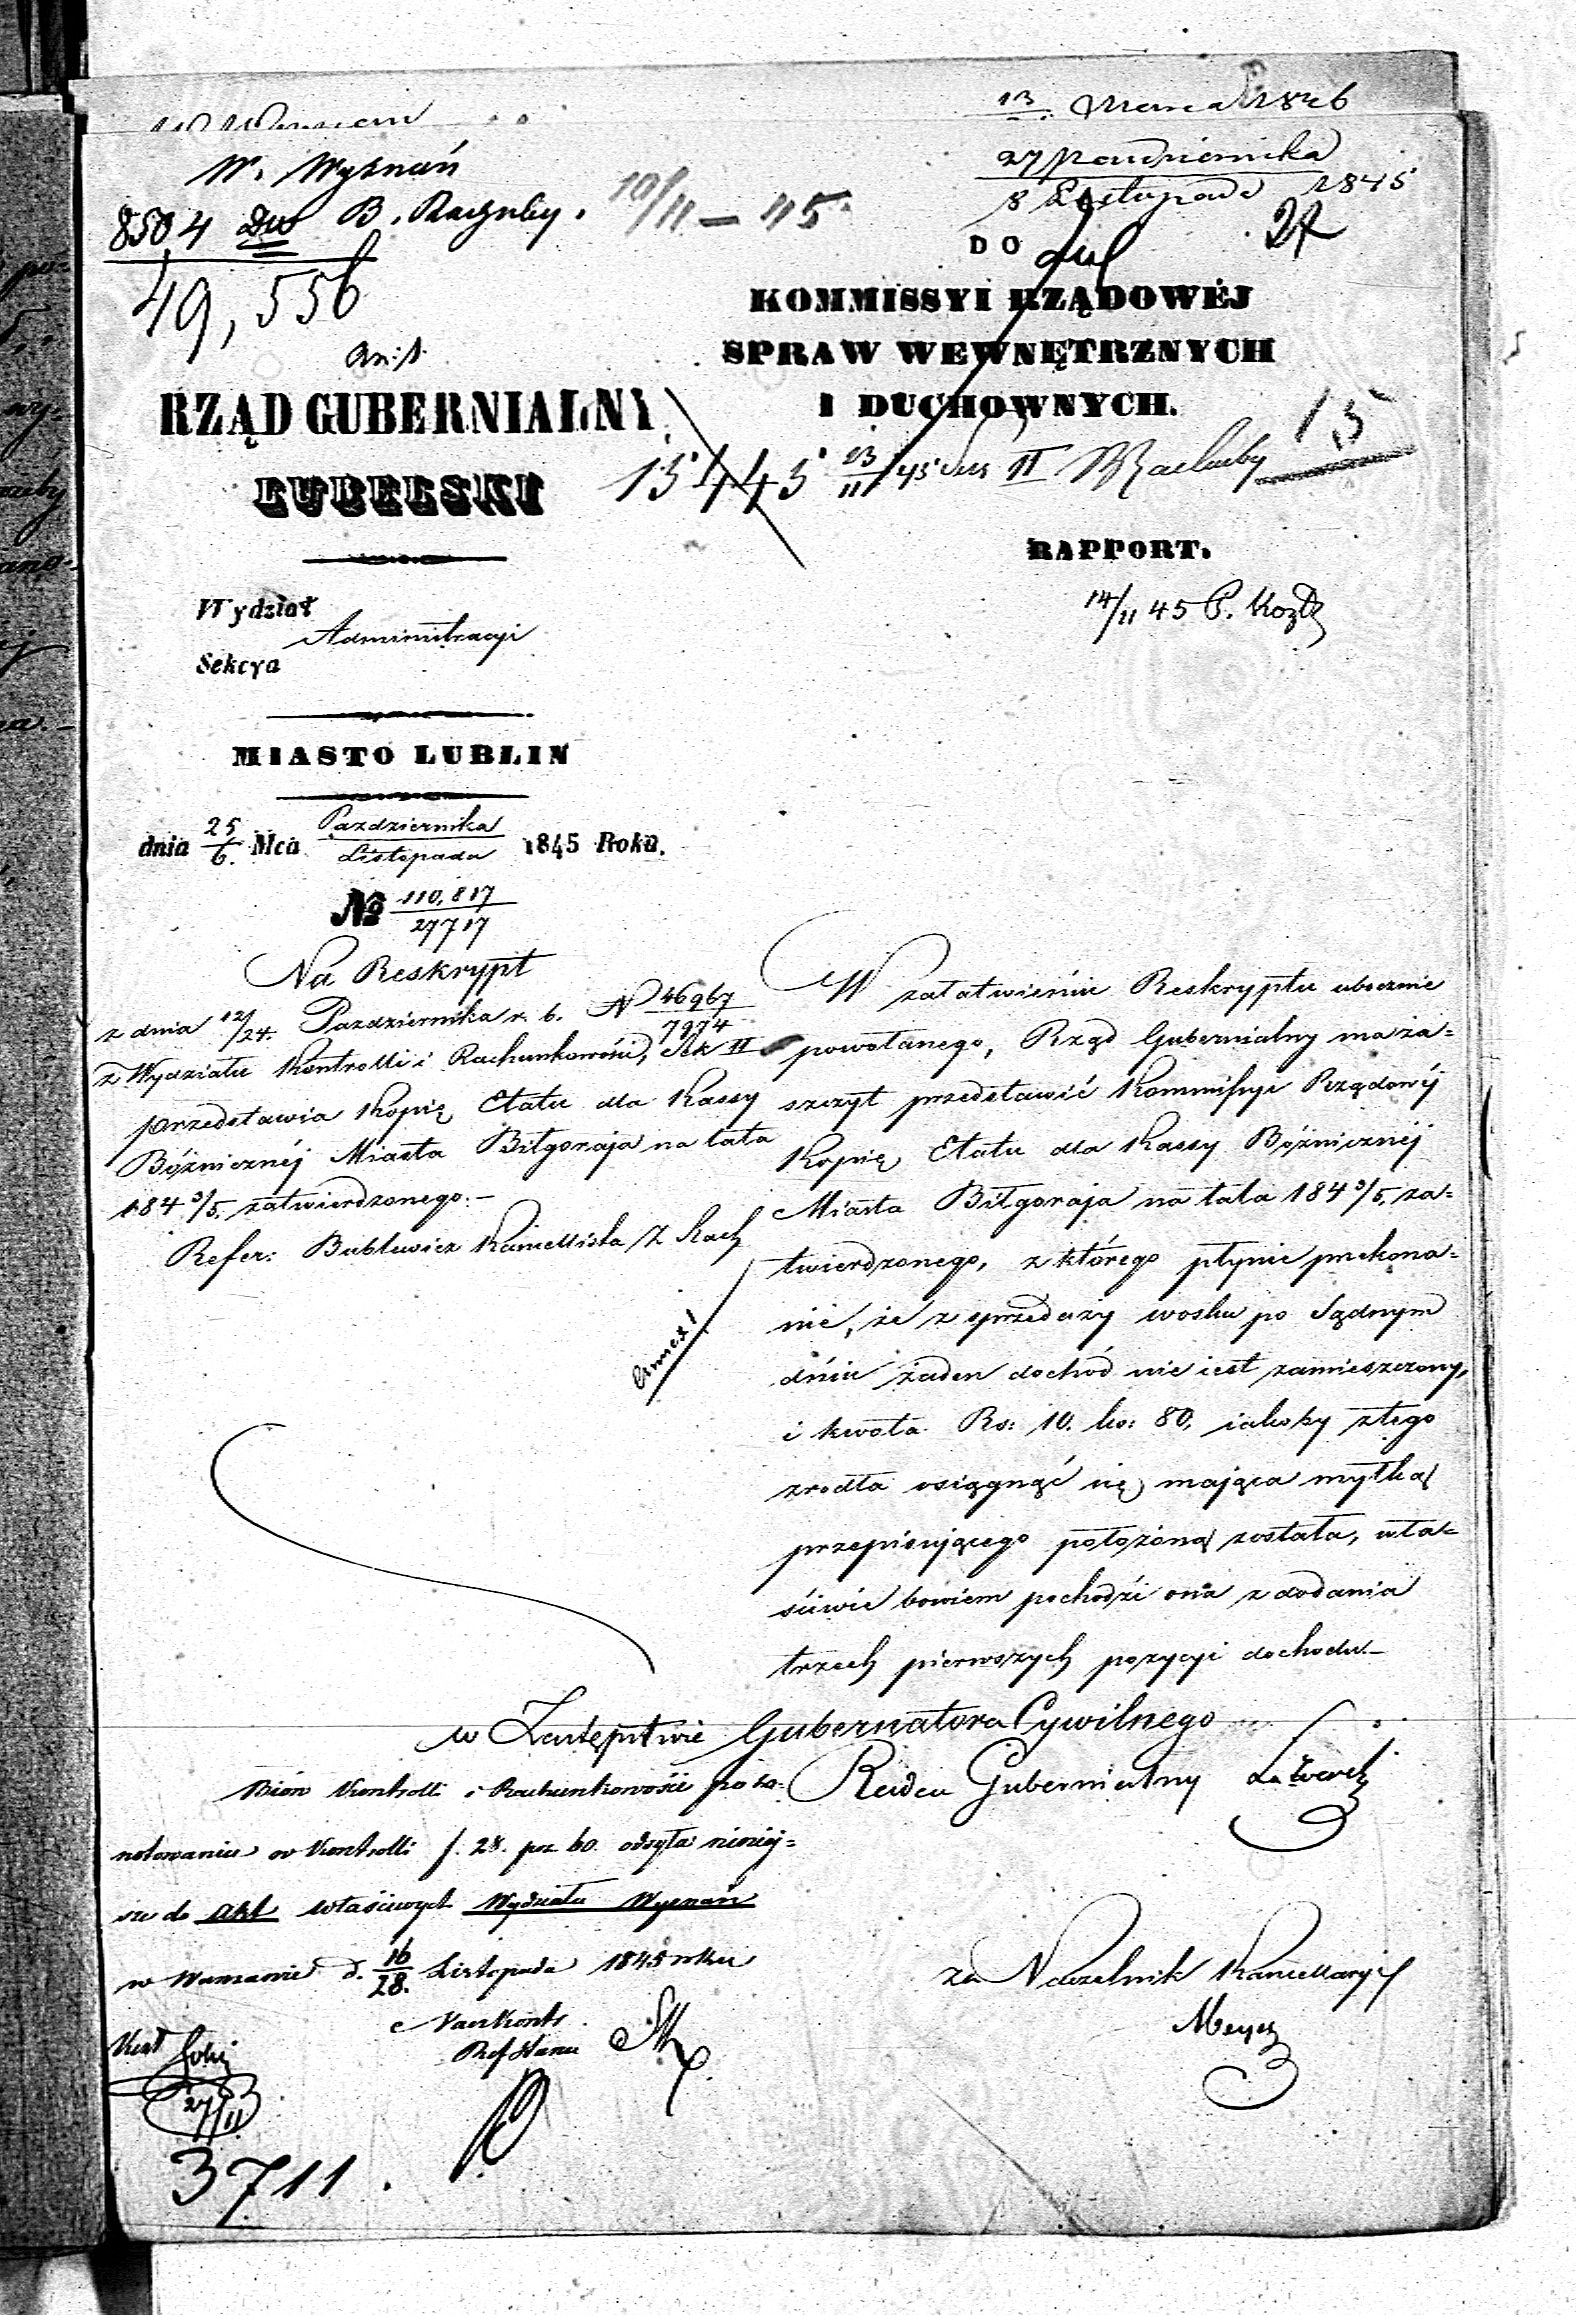 W. Wyznań
8504 B.
49,556
10/11 – 45
27 Października
8 Listopada 1845
DO
KOMMISSYI RZĄDOWÉJ
SPRAW WEWNĘTRZNYCH
I DUCHOWNYCH.
RZĄD GUBERNIALNY
LUBELSKI
15445 13/11 45 II
15
RAPPORT.
14/11 45
Wydział
Administracyi
Sekcya
MIASTO LUBLIN
dnia 25/6. Mca Pazdziernika/Listopada 1845 Roku.
No 110,817/27717
Na Reskrypt
z dnia 12/24. Pazdziernika r. b. N 46967/7974
z Wydziału Kontrolli i Rachunkowości, Sek II
przedstawia kopię Etatu dla Kassy
Bóżnicznéj Miasta Biłgoraja na lata
184 3/5. zatwierdzonego.–
Refer:
Annex 1
W załatwieniu Reskryptu ubocznie
powołanego, Rząd Gubernialny ma za=
szczyt przedstawić Kommissyi Rządowéj
kopię Etatu dla Kassy Bóżnicznéj
Miasta Biłgoraja na lata 184 3/5, za=
twierdzonego, z którego płynie przekona=
nie, że z sprzedaży wosku po Sądnym
dniu żaden dochód nie iest zamieszczony,
i kwota Rs: 10. ko: 80, iakoby z tego
zrodła osiągnąć się mająca myłką
przepisującego położoną została, wła=
ściwie bowiem pochodzi ona z dodania
trzech pierwszych pozycyi dochodu.–
w Zastępstwie Gubernatora Cywilnego
Radca Gubernialny
Kontrolli i Rachunkowości po za=
notowaniu w Kontrolli f. 28. poz 60. odsyła niniéj=
sze do Akt właściwych Wydziału Wyznań
w Warszawie d. 16/28. Listopada 1845 roku
za Naczelnik Kancellaryi
Meyer
27/11
3711.